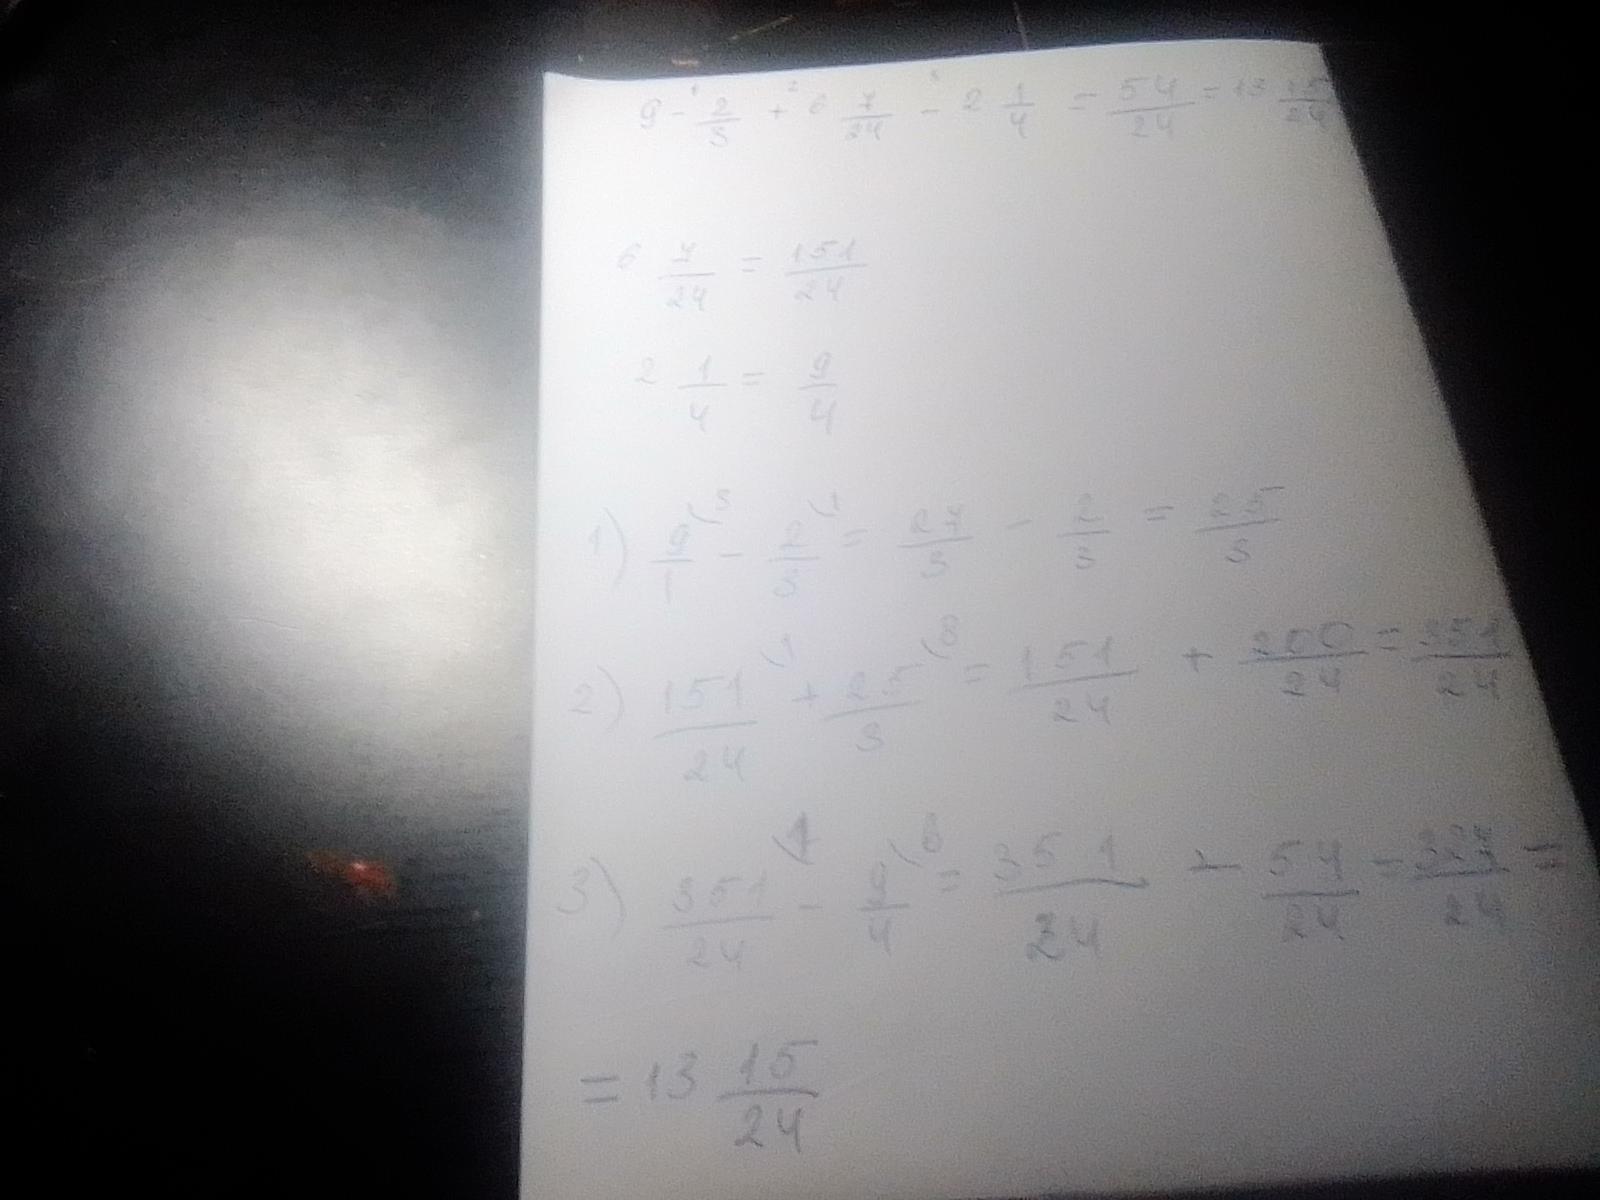 9 - 2/3 + 6 7/24 - 2 1/4 = 54/24 = 13 15/24
6 7/24 = 151/24
2 1/4 = 9/4
1) 9/1 (3 - 2/3 (1 = 27/3 - 2/3 = 25/3
2) 151/24 (1 + 25/3 (8 = 151/24 + 200/24 = 351/24
3) 351/24 (1 - 9/4 (6 = 351/24 - 54/24 = 327/24 =
= 13 15/24